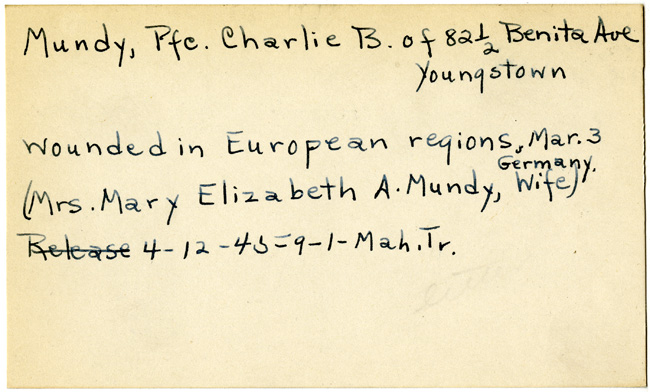 Mundy, Pfc. Charlie B. of 82 1/2 Benita Ave
Youngstown
Wounded in European regions, Mar. 3
Germany.
(Mrs. Mary Elizabeth A. Mundy, Wife)
Release 4-12-45=9-1-Mah. Tr.